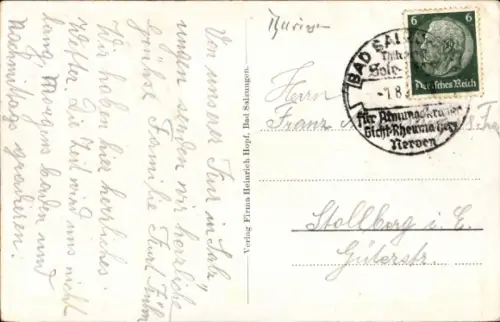 Von unserer Kur in Salz-
ungen senden wir herzliche
Grüße Familie Kurt
Wir haben hier herrliches
Wetter. Die Zeit wird uns nicht
lang Morgens baden und
Nachmittags spazieren.
Verlag Firma Heinrich Hopf, Bad Salzungen.
BAD SALZ
Sole
-1.8.
für Atmungskranke
Gicht-Rheuma Herz
Nerven
6 6
Deutsches Reich
Herrn
Franz
Stollberg i. E.
Güterstr.